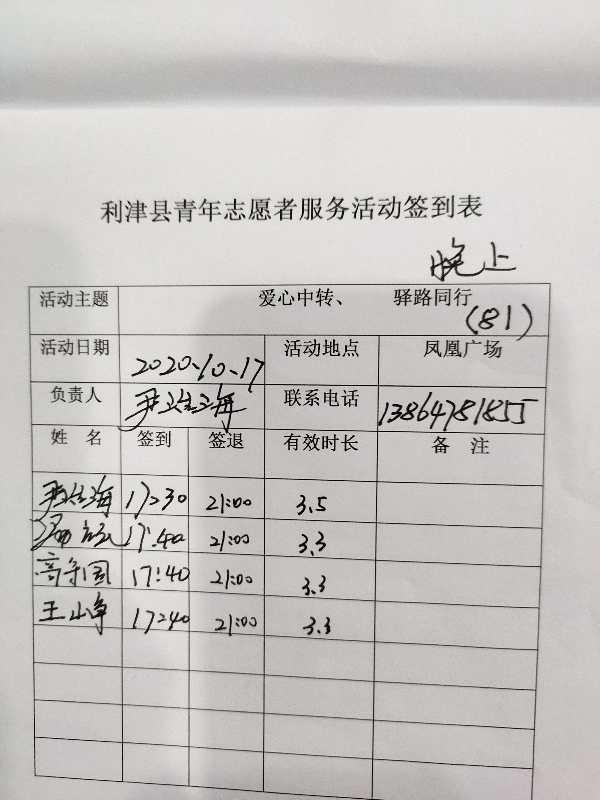 利津县青年志愿者服务活动签到表
晚上
活动主题 爱心中转、 驿路同行
(81)
活动日期 2020.10.17 活动地点 凤凰广场
负责人 海 联系电话 13864781855
姓 名 签到 签退 有效时长 备 注
海 17:30 21:00 3.5
17:40 21:00 3.3
高守国 17:40 21:00 3.3
王山峥 17:40 21:00 3.3